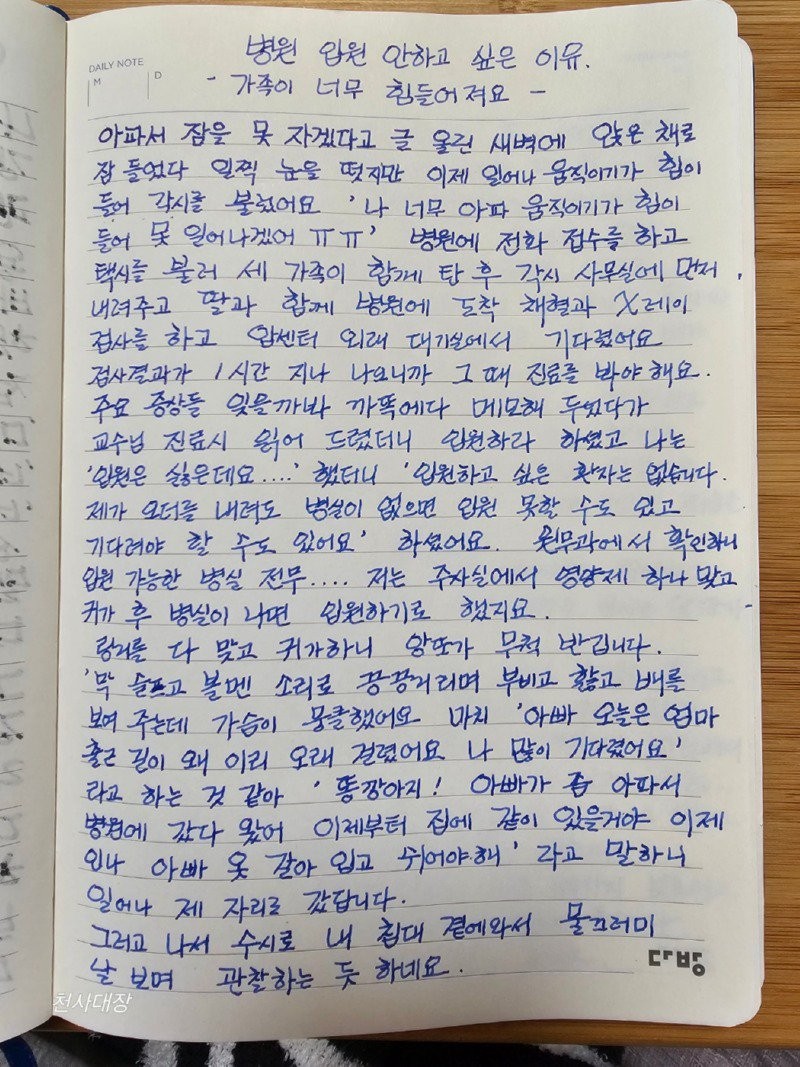 DAILY NOTE
M D
병원 입원 안하고 싶은 이유.
- 가족이 너무 힘들어져요 -
아파서 잠을 못 자겠다고 글 올린 새벽에 앉은 채로
잠 들었다 일찍 눈을 떳지만 이제 일어나 움직이기가 힘이
들어 각시를 불렀어요 '나 너무 아파 움직이기가 힘이
들어 못 일어나겠어 ㅠㅠ' 병원에 전화 접수를 하고
택시를 불러 세 가족이 함께 탄 후 각시 사무실에 먼저
내려주고 딸과 함께 병원에 도착 채혈과 X레이
검사를 하고 암센터 외래 대기실에서 기다렸어요
검사결과가 1시간 지나 나오니까 그 때 진료를 봐야해요.
주요 증상들 잊을까봐 까똑에다 메모해 두었다가
교수님 진료시 읽어 드렸더니 입원하라 하셨고 나는
'입원은 싫은데요....' 했더니 '입원하고 싶은 환자는 없습니다.
제가 오더를 내려도 병실이 없으면 입원 못할 수도 있고
기다려야 할 수도 있어요' 하셨어요. 원무과에서 확인하니
입원 가능한 병실 전무.... 저는 주사실에서 영양제 하나 맞고
귀가 후 병실이 나면 입원하기로 했지요.
링거를 다 맞고 귀가하니 앙또가 무척 반깁니다.
'막 슬프고 볼멘 소리로 끙끙거리며 부비고 핥고 배를
보여 주는데 가슴이 뭉클했어요 마치 '아빠 오늘은 엄마
출근 길이 왜 이리 오래 걸렸어요 나 많이 기다렸어요'
라고 하는 것 같아 '똥깡아지! 아빠가 좀 아파서
병원에 갔다 왔어 이제부터 집에 같이 있을거야 이제
인나 아빠 옷 갈아 입고 쉬어야해' 라고 말하니
일어나 제 자리로 갔답니다.
그러고 나서 수시로 내 침대 곁에와서 물끄러미
날 보며 관찰하는 듯 하네요.
다방
천사대장